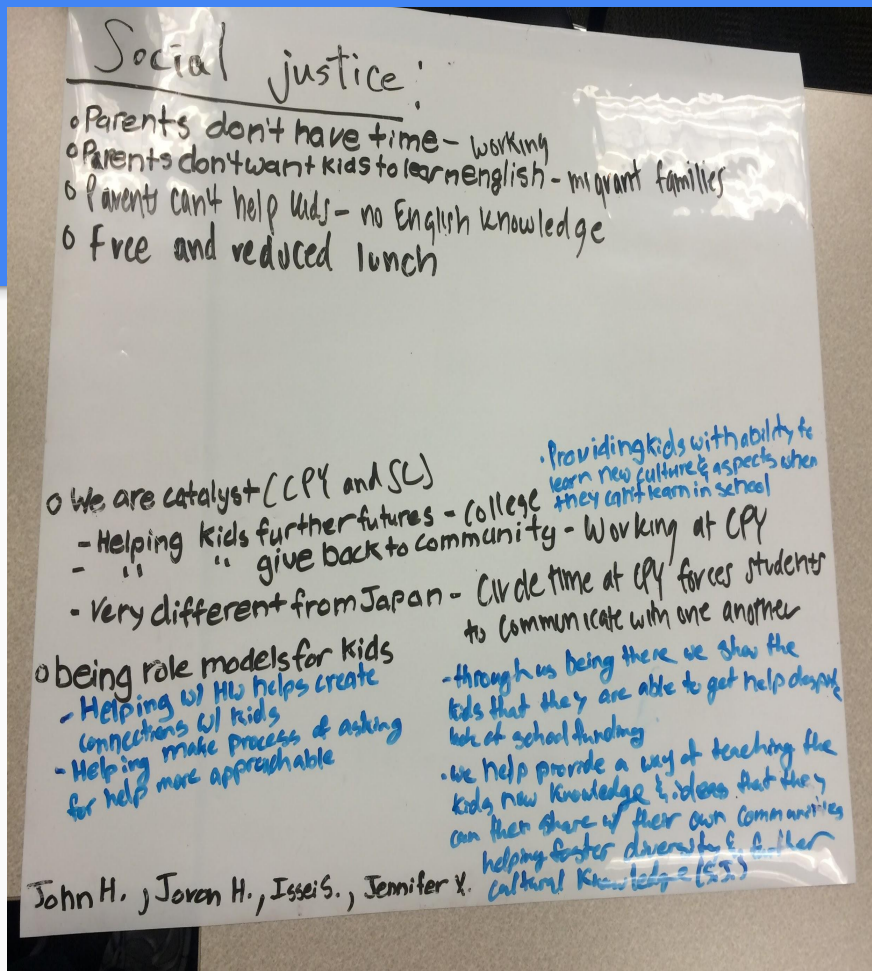 Social justice:
o Parents don't have time - working
o Parents don't want kids to learn english - migrant families
o Parents can't help kids - no English knowledge
o Free and reduced lunch
• Providing kids with ability to
learn new culture & aspects when
they can't learn in school
o We are catalyst (CPY and SC)
- Helping kids further futures - College
- " " give back to community - Working at CPY
- Very different from Japan - Circle time at CPY forces students
to communicate with one another
o being role models for kids
- Helping w/ HW helps create
connections w/ kids
- Helping make process of asking
for help more approachable
- through us being there we show the
kids that they are able to get help despite
lack of school funding
• we help provide a way of teaching the
kids new knowledge & ideas that they
can then share w/ their own communities
helping foster diversity & further
cultural knowledge (SJ)
John H., Jovon H., Issei S., Jennifer Y.